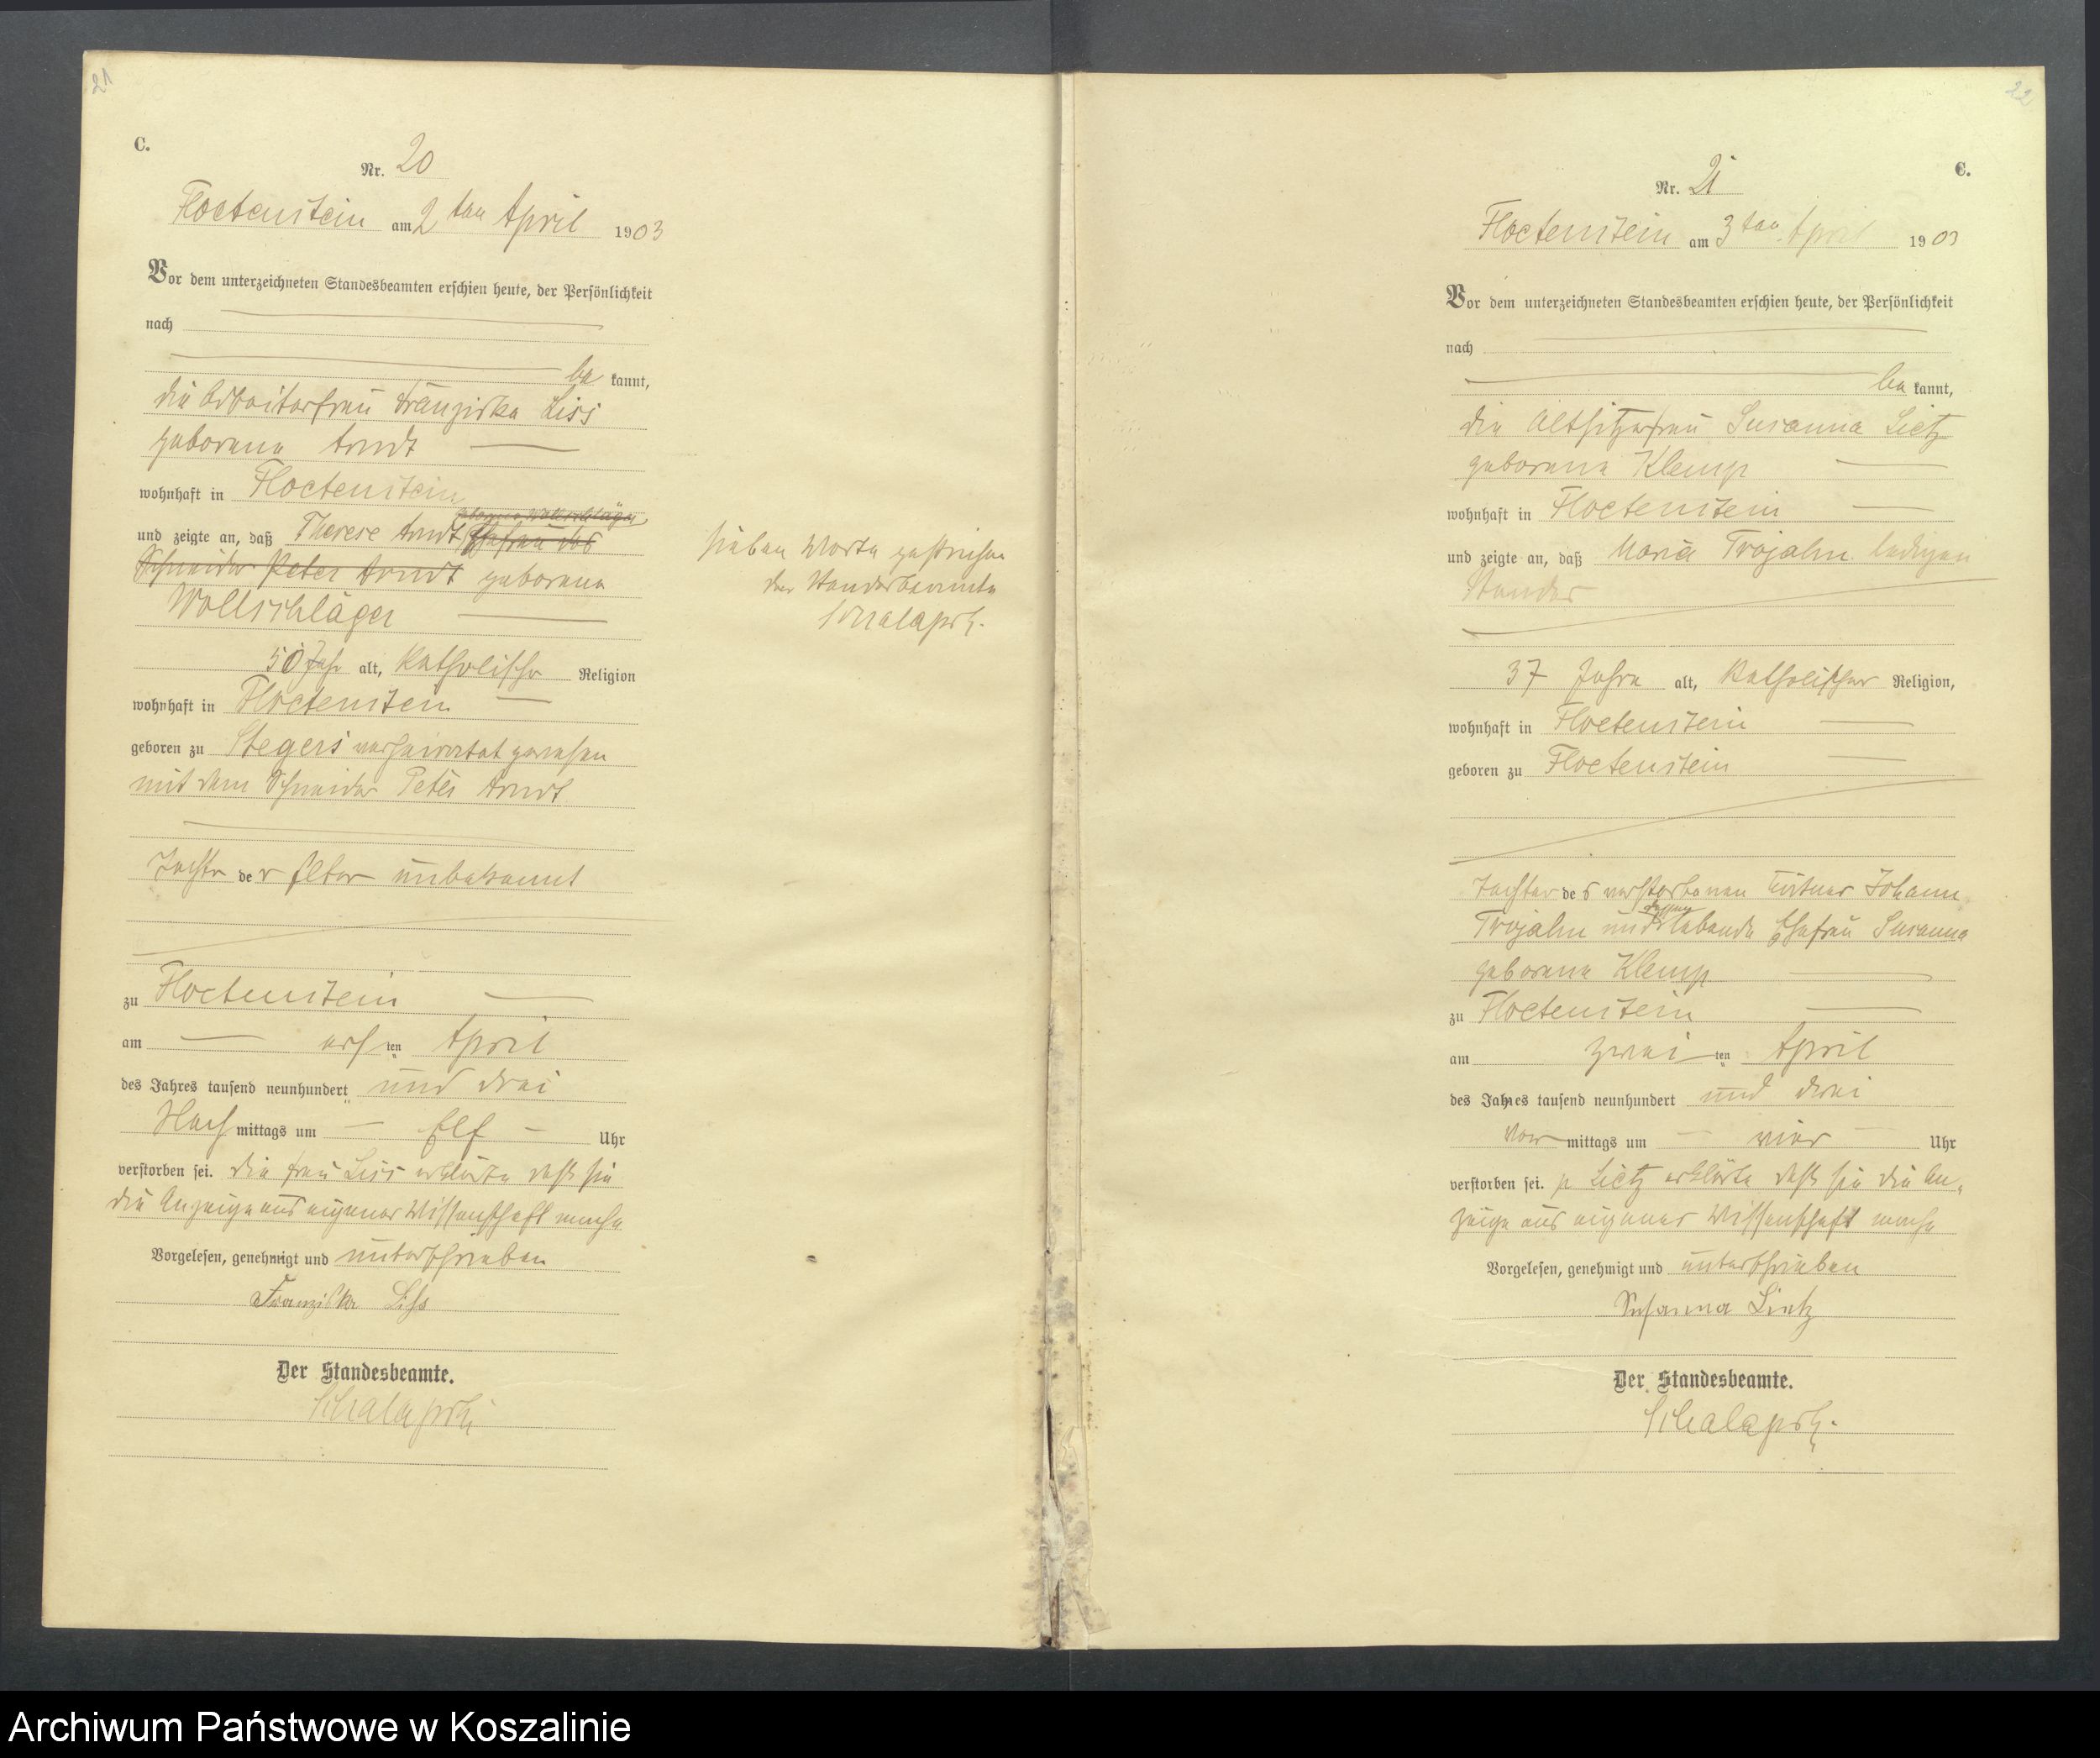 21
C.
Nr. 20
Floetenstein am 2ten April 1903
Vor dem unterzeichneten Standesbeamten erschien heute, der Persönlichkeit
nach
be kannt,
die Arbeiterfrau Franziska Liss
geborene Arndt
wohnhaft in Floetenstein
geborene Wollschläger
und zeigte an, daß Therese Arndt Ehefrau des
Schneider Peter Arndt geborene
Wollschläger
50 Jahr alt, katholischer Religion
wohnhaft in Floetenstein
geboren zu Stegers verheirathet gewesen
mit dem Schneider Peter Arndt
Tochter der Elter unbekannt
zu Floetenstein
am ersten April
des Jahres tausend neunhundert und drei
Nach mittags um Elf Uhr
verstorben sei. Die Frau Liss erklärte daß sie
die Anzeige aus eigener Wissenschaft mache
Vorgelesen, genehmigt und unterschrieben
Franziska Liss
Der Standesbeamte.
Sieben Worte gestrichen
der Standesbeamte
22
C.
Nr. 21
Floetenstein am 3ten April 1903
Vor dem unterzeichneten Standesbeamten erschien heute, der Persönlichkeit
nach
be kannt,
die Altsitzerfrau Susanna Lietz
geborene Klemp
wohnhaft in Floetenstein
und zeigte an, daß Maria Trojahn ledigen
Standes
37 Jahre alt, katholischer Religion,
wohnhaft in Floetenstein
geboren zu Floetenstein
Tochter des verstorbenen Johann
dessen
Trojahn und lebende Ehefrau Susanna
geborene Klemp
zu Floetenstein
am zwei ten April
des Jahres tausend neunhundert und drei
Vor mittags um vier Uhr
verstorben sei. p Lietz erklärte daß sie die An-
zeige aus eigener Wissenschaft mache
Vorgelesen, genehmigt und unterschrieben
Susanna Lietz
Der Standesbeamte.
Archiwum Państwowe w Koszalinie